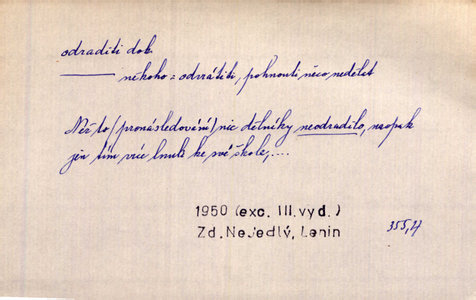 odraditi dok.
——— někoho = odvrátiti, pohnouti něco nedělat
Než to (pronásledování) nic dělníky neodradilo, naopak
jen tím více lnuli ke své škole, ....
1950 (exc. III. vyd.)
Zd. Nejedlý, Lenin
355,27